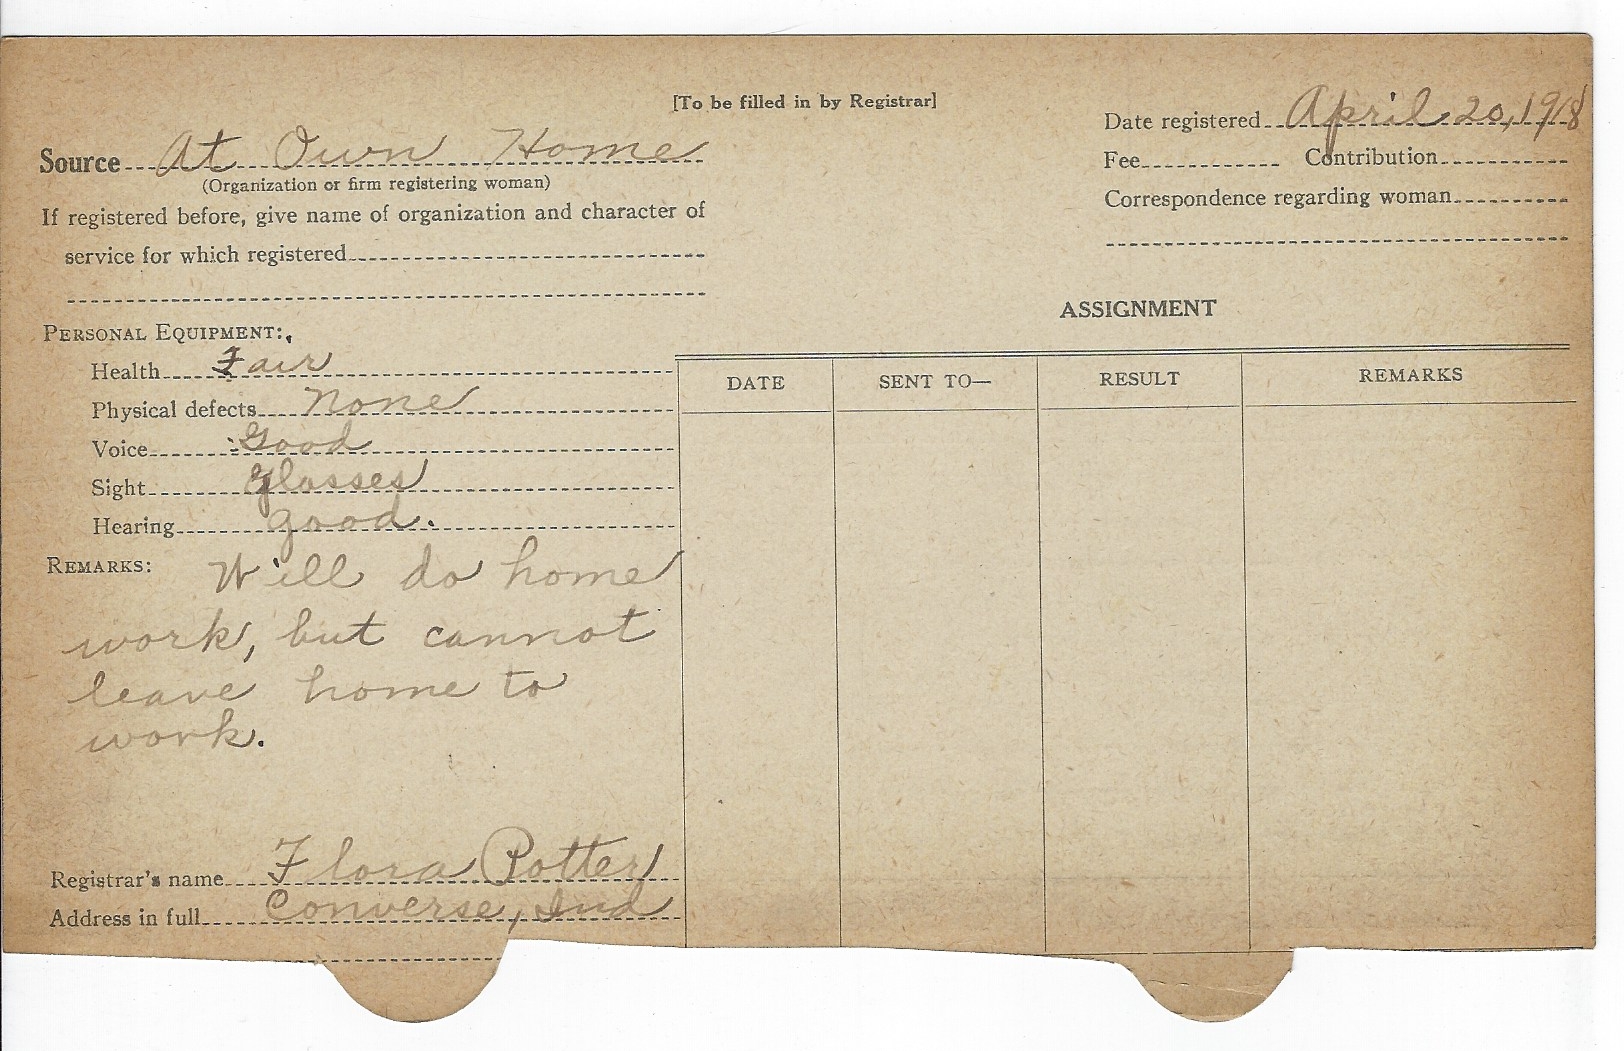 [To be filled in by Registrar]
Date registered April 20, 1918
Source At Own Home
(Organization or firm registering woman)
Fee Contribution
If registered before, give name of organization and character of
service for which registered
Correspondence regarding woman
PERSONAL EQUIPMENT:
Health Fair
Physical defects None
Voice Good
Sight Glasses
Hearing good.
REMARKS: Will do home
work, but cannot
leave home to
work.
Registrar's name Flora Potter
Address in full Converse, Ind
ASSIGNMENT
DATE SENT TO— RESULT REMARKS